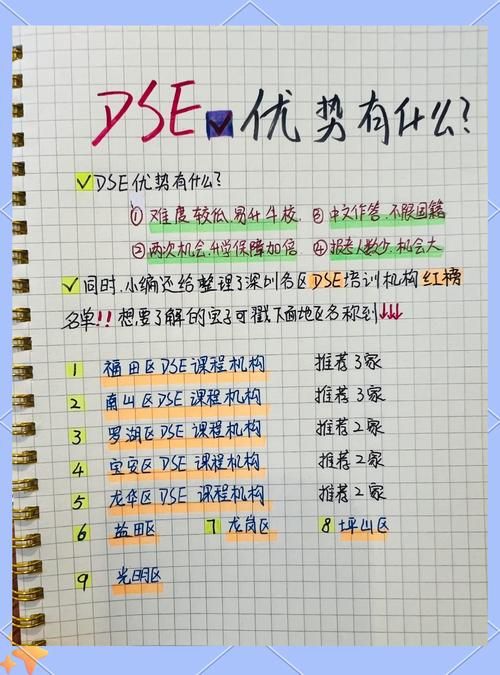 DSE 优势有什么?
DSE优势有什么?
① 难度较低,易升牛校, ③ 中文作答,不限国籍
② 两次机会,升学保障加倍 ④ 报考人数少,机会大
同时,小编还给整理了深圳各区DSE培训机构红榜
名单!!想要了解的宝子可戳下面地区名称到↓↓↓
1 福田区DSE课程机构 推荐3家
2 南山区DSE课程机构 推荐3家
3 罗湖区DSE课程机构 推荐2家
4 宝安区DSE课程机构 推荐2家
5 龙华区DSE课程机构 推荐2家
6 盐田区 7 龙岗区 8 坪山区
9 光明区